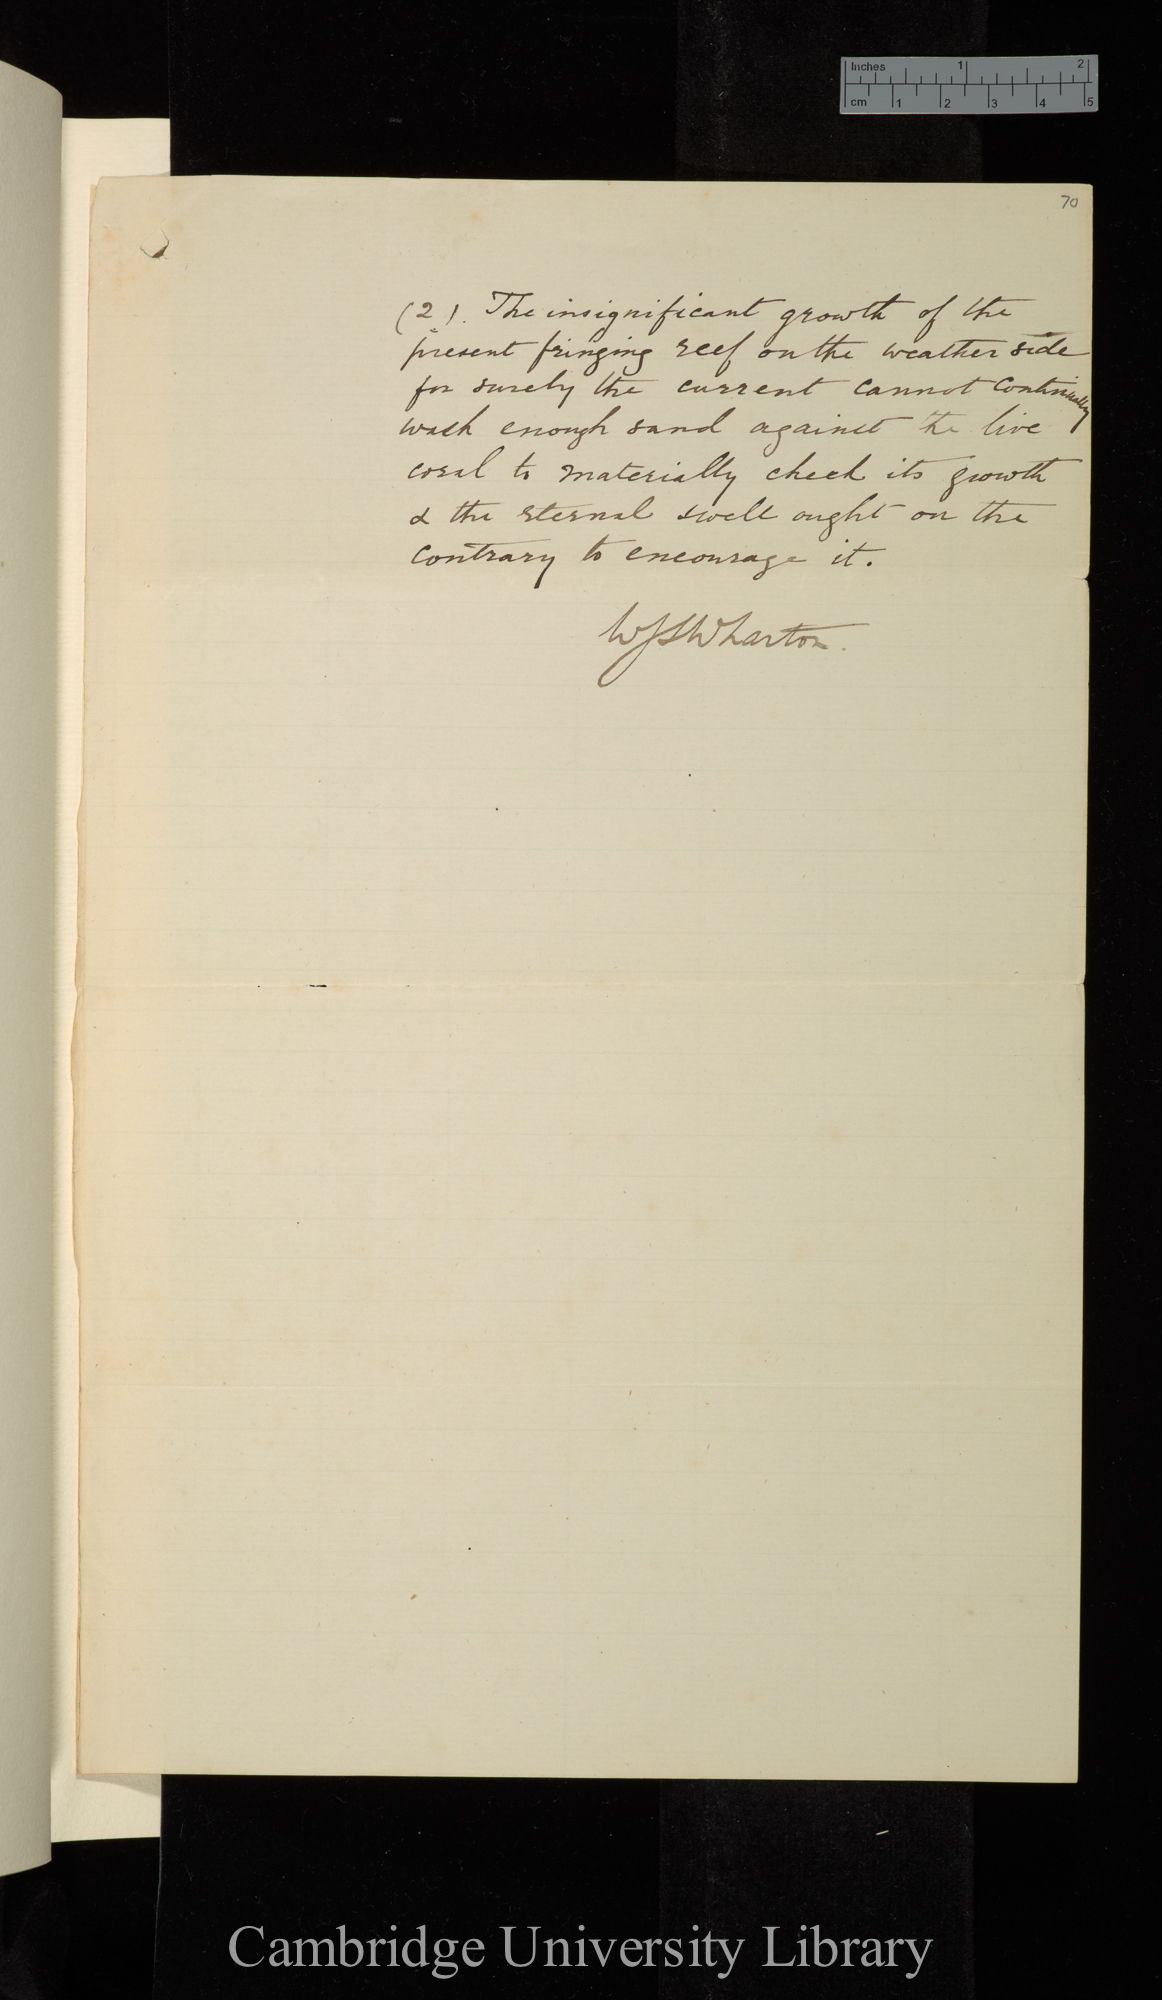 Inches 1 2
cm 1 2 3 4 5
70
(2). The insignificant growth of the
present fringing reef on the weather side
for surely the current cannot continually
wash enough sand against the live
coral to materially check its growth
& the eternal swell ought on the
contrary to encourage it.
WJLWharton.
Cambridge University Library